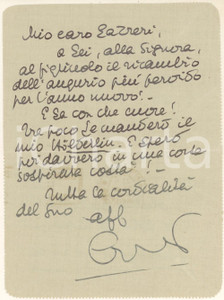 Mio caro Lazzeri,
a Lei, alla Signora,
al figliuolo il ricambio
dell'augurio più fervido
per l'anno nuovo! -
E Lei con che cuore!
Tra poco Le manderò il
mio Hölderlin. E spero
poi davvero in una così
sospirata cosa
Tutta la cordialità
del Suo
aff